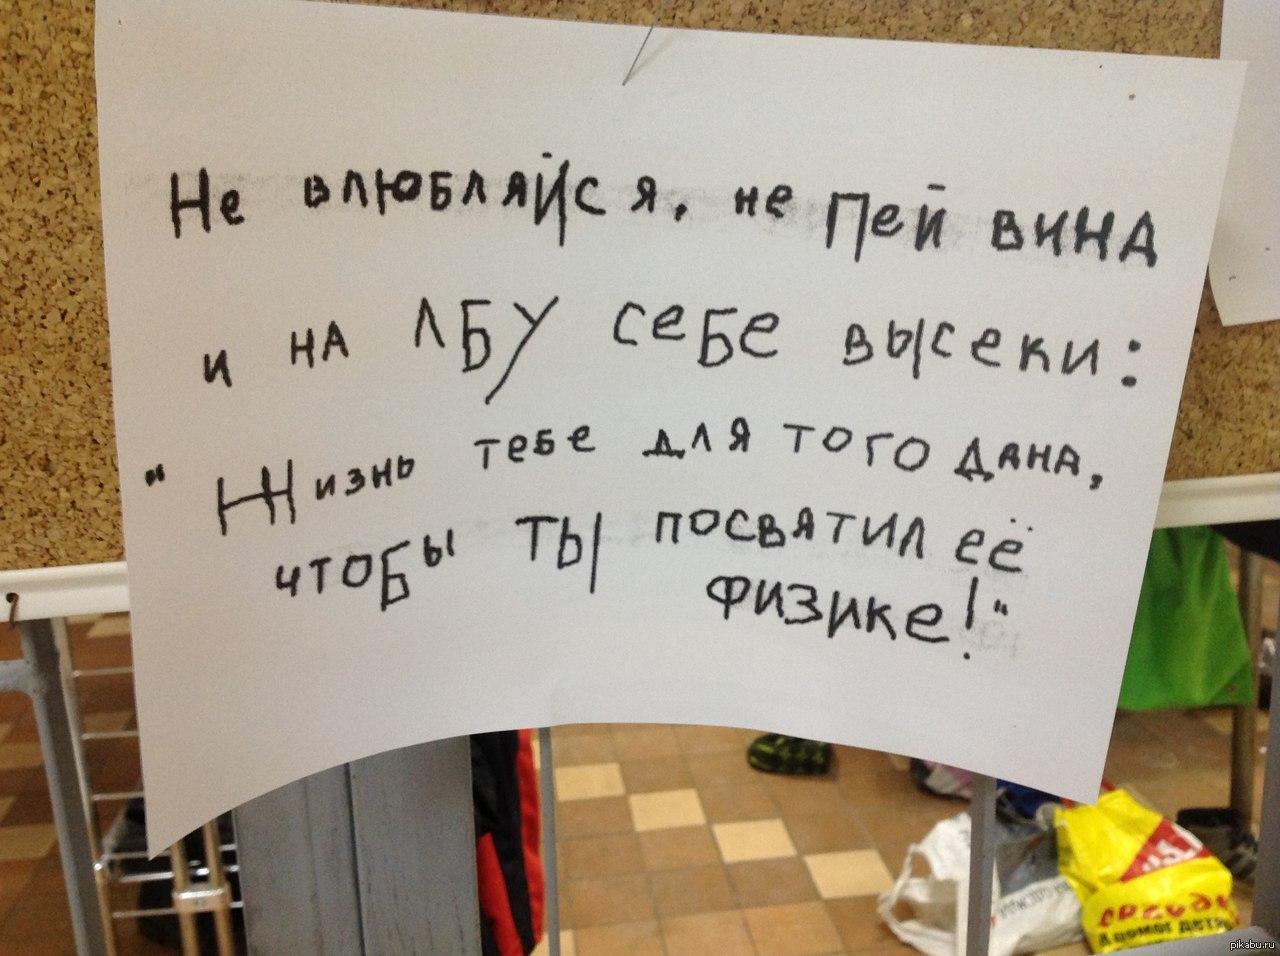 Не влюбляйся, не пей вина
и на лбу себе высеки:
"Жизнь тебе для того дана,
чтобы ты посвятил её
физике!"
pikabu.ru